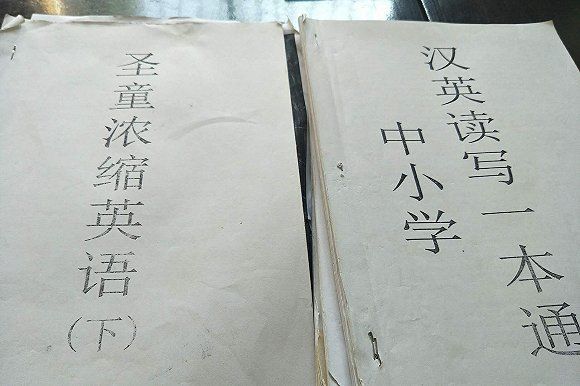 圣童浓缩英语(下)
汉英读写一本通
中小学